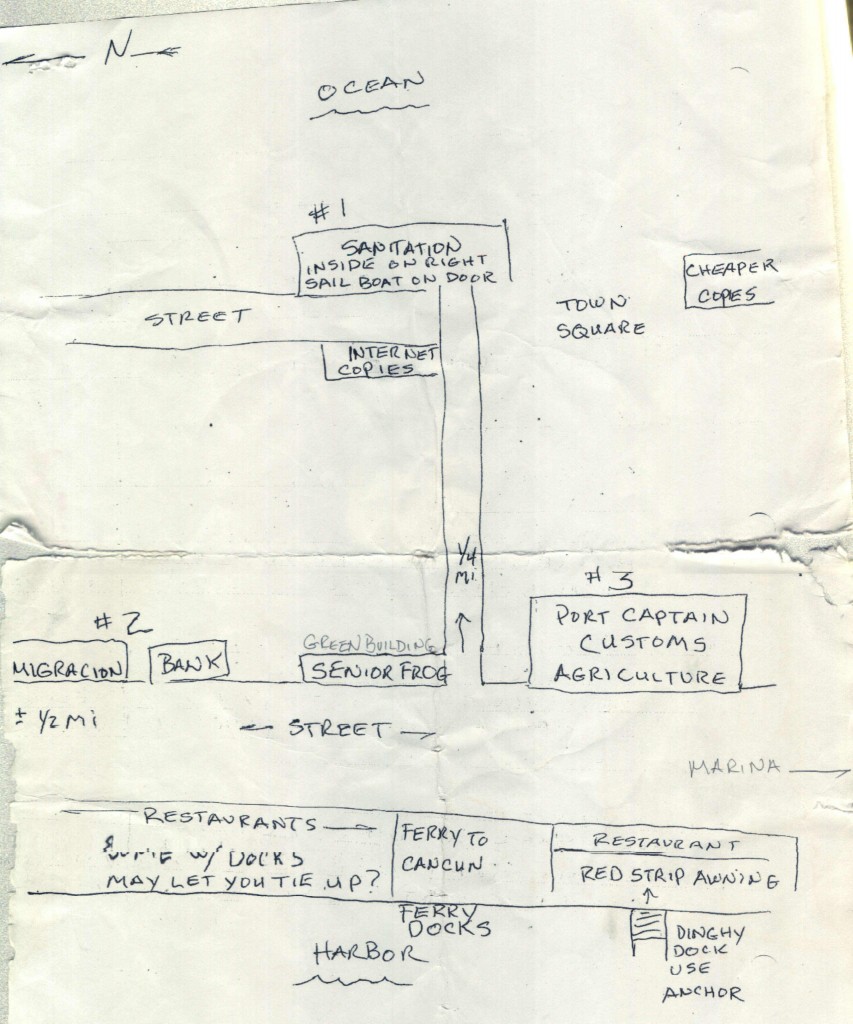 N
OCEAN
#1
SANITATION
INSIDE ON RIGHT
SAIL BOAT ON DOOR
CHEAPER
COPIES
TOWN
SQUARE
STREET
INTERNET
COPIES
1/4
MI
#3
PORT CAPTAIN
CUSTOMS
AGRICULTURE
#2
MIGRACION
BANK
GREEN BUILDING
SENIOR FROG
± 1/2 MI
STREET
MARINA
RESTAURANTS
W/ DOCKS
MAY LET YOU TIE UP?
FERRY TO
CANCUN
RESTAURANT
RED STRIP AWNING
FERRY
DOCKS
HARBOR
DINGHY
DOCK
USE
ANCHOR